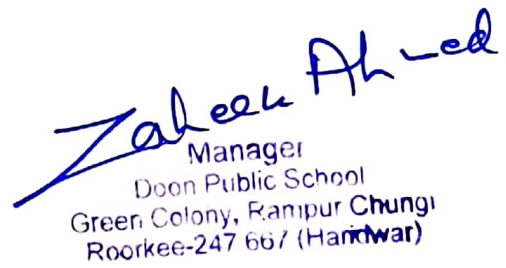 Zaheer Ahmed
Manager
Doon Public School
Green Colony, Rampur Chungi
Roorkee-247 667 (Haridwar)